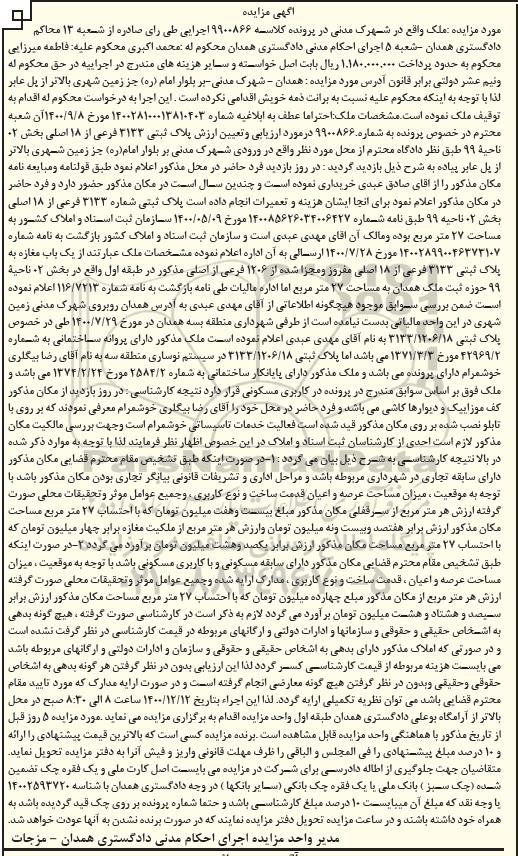 آگهی مزایده
مورد مزایده :ملک واقع در شهرک مدنی در پرونده کلاسه ۹۹۰۰۸۶۶ اجرایی طی رای صادره از شعبه ۱۳ محاکم
دادگستری همدان –شعبه ۵ اجرای احکام مدنی دادگستری همدان محکوم له :محمد اکبری محکوم علیه: فاطمه میرزایی
محکوم به حدود پرداخت ۱.۱۸۰.۰۰۰.۰۰۰ ریال بابت اصل خواسته و سایر هزینه های مندرج در اجراییه در حق محکوم له
ونیم عشر دولتی برابر قانون آدرس مورد مزایده : همدان – شهرک مدنی–بر بلوار امام (ره) جز زمین شهری بالاتر از پل عابر
لذا با توجه به اینکه محکوم علیه نسبت به برائت ذمه خویش اقدامی نکرده است . این اجرا به درخواست محکوم له اقدام به
توقیف ملک نموده است.مشخصات ملک:احتراما عطف به ابلاغیه شماره ۱۴۰۰۲۸۱۰۰۰۱۳۸۱۰۴۰۳ مورخ ۱۴۰۰/۹/۸آن شعبه
محترم در خصوص پرونده به شماره.۹۹۰۰۸۶۶ درمورد ارزیابی وتعیین ارزش پلاک ثبتی ۳۱۳۳ فرعی از ۱۸ اصلی بخش ۰۲
ناحیهٔ ۹۹ طبق نظر دادگاه محترم از محل مورد نظر واقع در ورودی شهرک مدنی بر بلوار امام(ره) جز زمین شهری بالاتر
از پل عابر پیاده به شرح ذیل بازدید گردید : در روز بازدید فرد حاضر در محل مذکور اعلام نمود طبق قولنامه ومبایعه نامه
مکان مذکور را از اقای صادق عبدی خریداری نموده است و چندین سال است در مکان مذکور حضور دارد و فرد حاضر
در مکان مذکور اعلام نمود برای انجا ایشان هزینه و تعمیرات انجام داده است پلاک ثبتی شماره ۳۱۳۳ فرعی از ۱۸ اصلی
بخش ۰۲ ناحیه ۹۹ طبق نامه شماره ۱۴۰۰۸۵۶۲۶۰۳۴۰۰۶۴۲۷ مورخ ۱۴۰۰/۰۵/۰۹ سازمان ثبت اسناد و املاک کشور به
مساحت ۲۷ متر مربع بوده ومالک آن اقای مهدی عبدی است و سازمان ثبت اسناد و املاک کشور بازگشت به نامه شماره
۱۴۰۰۲۸۹۹۰۰۴۶۳۷۳۱۰۷ مورخ ۱۴۰۰/۷/۲۸ ارسالی به آن اداره اعلام نموده مشخصات ملک عبارتند از یک باب مغازه به
پلاک ثبتی ۳۱۳۳ فرعی از ۱۸ اصلی مفروز ومجزا شده از ۱۲۰۶ فرعی از اصلی مذکور در طبقه اول واقع در بخش ۰۲ ناحیهٔ
۹۹ حوزه ثبت ملک همدان به مساحت ۲۷ متر مربع اما اداره مالیات طی نامه بازگشت به نامه شماره ۱۱۶/۷۲۱۳ اعلام نموده
است ضمن بررسی سوابق موجود هیچگونه اطلاعاتی از آقای مهدی عبدی به آدرس همدان روبروی شهرک مدنی زمین
شهری در این واحد مالیاتی بدست نیامده است از طرفی شهرداری منطقه بسه همدان در مورخ ۱۴۰۰/۷/۲۹ طی در خصوص
پلاک ثبتی ۳۱۳۳/۱۲۰۶/۱۸ به نام آقای مهدی عبدی اعلام نموده است ملک مذکور دارای پروانه ساختمانی به شماره
۴۲۹۶۹/۲ مورخ ۱۳۷۱/۳/۳ می باشد اما پلاک ثبتی ۳۱۳۳/۱۲۰۶/۱۸ در سیستم نوسازی منطقه سه به نام آقای رضا بیگلری
خوشمرام دارای پرونده می باشد و ملک مذکور دارای پایانکار ساختمانی به شماره ۲۵۸۴/۲ مورخ ۱۳۷۴/۲/۲۴ می باشد و
ملک فوق بر اساس سوابق مندرج در پرونده در کاربری مسکونی قرار دارد نتیجه کارشناسی : در روز بازدید از مکان مذکور
کف موزاییک و دیوارها کاشی می باشد و فرد حاضر در محل خود را آقای رضا بیگلری خوشمرام معرفی نمودند که بر روی با
تابلو نصب شده بر روی مکان مذکور قید شده است فعالیت خدمات تاسیساتی خوشمرام است وجهت بررسی مالکیت مکان
مذکور لازم است احدی از کارشناسان ثبت اسناد و املاک در این خصوص اظهار نظر فرمایند لذا با توجه به موارد ذکر شده
در بالا نتیجه کارشناسی به شرح ذیل بیان می گردد : ۱–در صورت اینکه طبق تشخیص مقام محترم قضایی مکان مذکور
دارای سابقه تجاری در شهرداری مربوطه باشد و مراحل اداری و تشریفات قانونی بیانگر تجاری بودن مکان مذکور باشد با
توجه به موقعیت ، میزان مساحت عرصه و اعیان قدمت ساخت و نوع کاربری ، وجمیع عوامل موثر وتحقیقات محلی صورت
گرفته ارزش هر متر مربع از سرقفلی مکان مذکور مبلغ بیست وهفت میلیون تومان که با احتساب ۲۷ متر مربع مساحت
مکان مذکور ارزش برابر هفتصد وبیست ونه میلیون تومان وارزش هر متر مربع از ملکیت مغازه برابر چهار میلیون تومان که
با احتساب ۲۷ متر مربع مساحت مکان مذکور ارزش برابر یکصد وهشت میلیون تومان برآورد می گردد ۲–در صورت اینکه
طبق تشخیص مقام محترم قضایی مکان مذکور دارای سابقه مسکونی و با کاربری مسکونی باشد با توجه به موقعیت ، میزان
مساحت عرصه و اعیان ، قدمت ساخت و نوع کاربری ، مدارک ارایه شده وجمیع عوامل موثر وتحقیقات محلی صورت گرفته
ارزش هر متر مربع از مکان مذکور مبلغ چهارده میلیون تومان که با احتساب ۲۷ متر مربع مساحت مکان مذکور ارزش برابر
سیصد و هشتاد و هشت میلیون تومان برآورد می گردد لازم به ذکر است در کارشناسی صورت گرفته ، هیچ گونه بدهی
به اشخاص حقیقی و حقوقی و سازمانها و ادارات دولتی و ارگانهای مربوطه در قیمت کارشناسی در نظر گرفت نشده است
و در صورتی که املاک مذکور دارای بدهی به اشخاص حقیقی و حقوقی و سازمان و ادارات دولتی و ارگانهای مربوطه باشد
می بایست هزینه مربوطه از قیمت کارشناسی کسر گردد لذا این ارزیابی بدون در نظر گرفتن هر گونه بدهی به اشخاص
حقوقی وحقیقی وبدون در نظر گرفتن هیچ گونه معارضی انجام گرفته است و در صورت ارایه مدارک که مورد تایید مقام
محترم قضایی باشد می توان نظریه تکمیلی ارایه گردد. لذا این اجراء بتاریخ ۱۴۰۰/۱۲/۱۲ ساعت ۸ الی ۸:۳۰ صبح در محل
بالاتر از آرامگاه بوعلی دادگستری همدان طبقه اول واحد مزایده اقدام به برگزاری مزایده می نماید .مورد مزایده ۵ روز قبل
از تاریخ مذکور با هماهنگی واحد مزایده قابل مشاهده است .برنده مزایده کسی است که بالاترین قیمت پیشنهادی را ارائه
و ۱۰ درصد مبلغ پیشنهادی را فی المجلس و الباقی را ظرف مهلت قانونی واریز و فیش آنرا به دفتر مزایده تحویل نماید.
متقاضیان جهت جلوگیری از اطاله دادرسی برای شرکت در مزایده می بایست اصل کارت ملی و یک فقره چک تضمین
شده (چک سبز ) بانک ملی یا یک فقره چک بانکی (سایر بانکها ) در وجه دادگستری همدان با شناسه ۱۴۰۰۲۵۹۳۷۲۰
یا وجه نقد که مبلغ آن میبایست ۱۰ درصد مبلغ کارشناسی باشد و حتما شماره پرونده بر روی چک قید گردیده باشد به
همراه خود داشته باشند و در ساعت مزایده تحویل دفتر مزایده نمایند که در صورت برنده نشدن به آنها عودت خواهد شد.
مدیر واحد مزایده اجرای احکام مدنی دادگستری همدان – مزجات